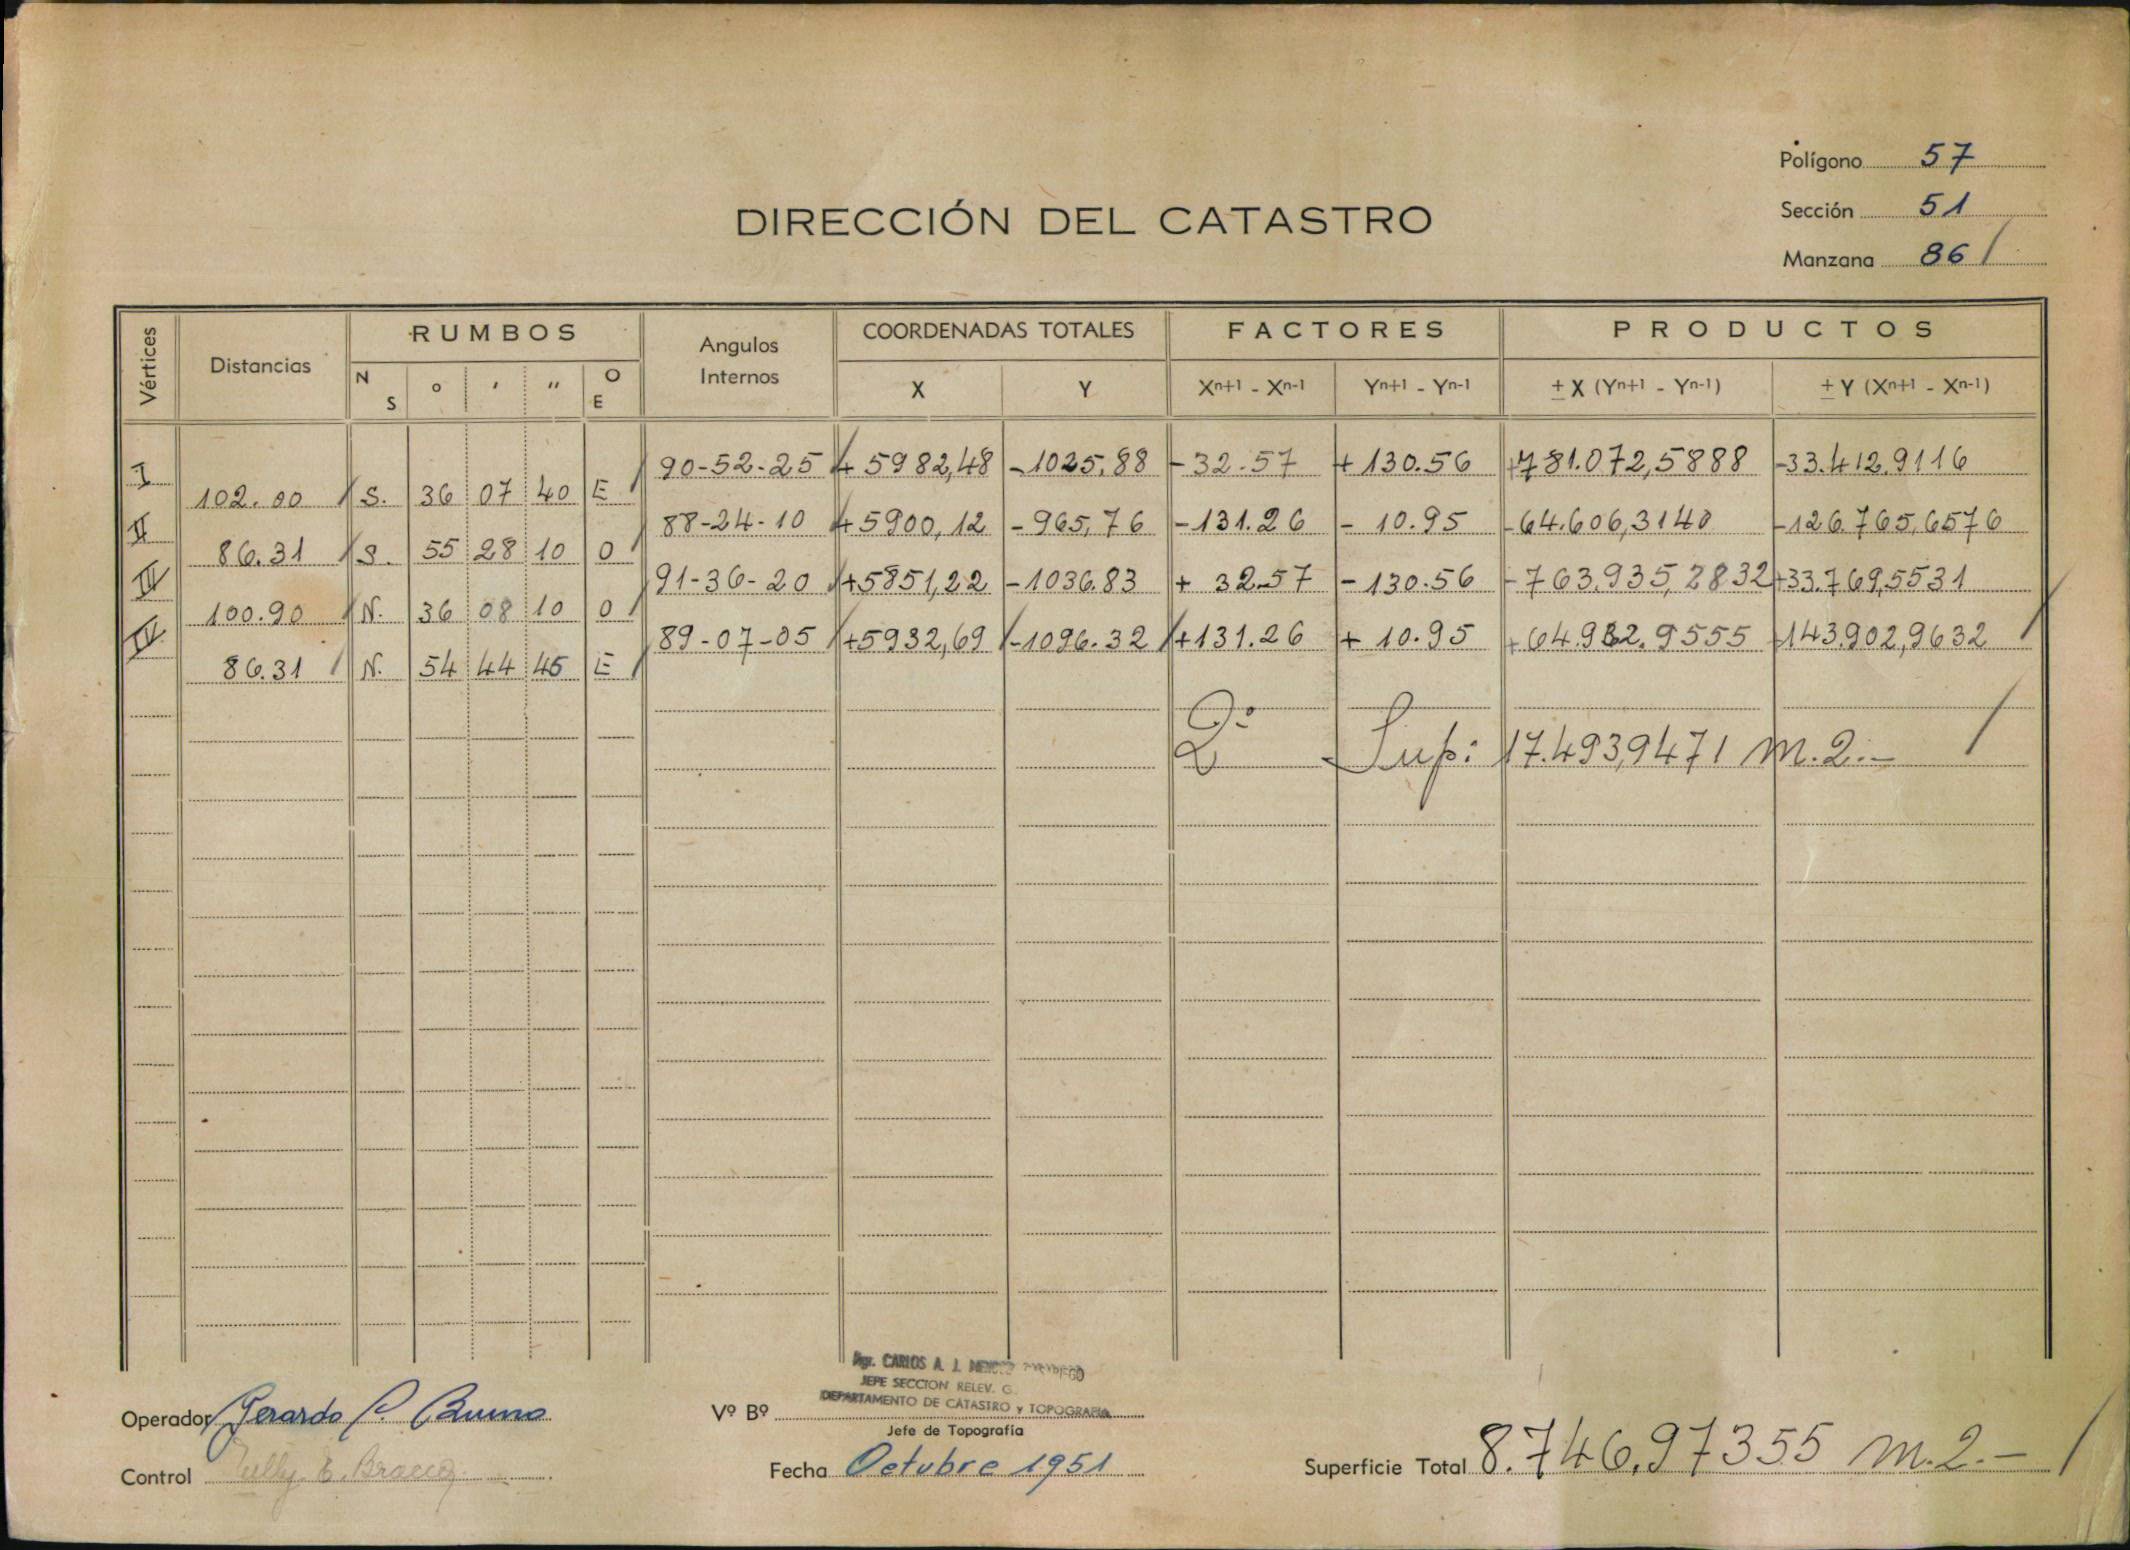 Polígono 57
Sección 51
Manzana 86
DIRECCIÓN DEL CATASTRO
Vértices Distancias RUMBOS Angulos Internos COORDENADAS TOTALES FACTORES PRODUCTOS
N S ° ' " O E X Y Xn+1 - Xn-1 Yn+1 - Yn-1 ± X (Yn+1 - Yn-1) ± Y (Xn+1 - Xn-1)
I 90-52-25 +5982,48 -1025,88 -32.57 +130.56 +781.072,5888 -33.412.9116
102.00 S. 36 07 40 E
II 88-24-10 +5900,12 -965,76 -131.26 - 10.95 -64.606,3140 -126.765,6576
86.31 S. 55 28 10 O
III 91-36-20 +5851,22 -1036.83 + 32.57 -130.56 -763.935,2832 +33.769,5531
100.90 N. 36 08 10 O
IV 89-07-05 +5932,69 -1096.32 +131.26 + 10.95 +64.962.9555 +143.902,9632
86.31 N. 54 44 45 E
2° Sup: 17.493,9471 m.2.-
Agr. CARLOS A. J.
JEFE SECCION RELEV. G.
DEPARTAMENTO DE CATASTRO y TOPOGRAFIA
Operador Gerardo P. Bruno
Vº Bº
Jefe de Topografía
Control E. Bracco
Fecha Octubre 1951
Superficie Total 8.746.97355 m.2.-